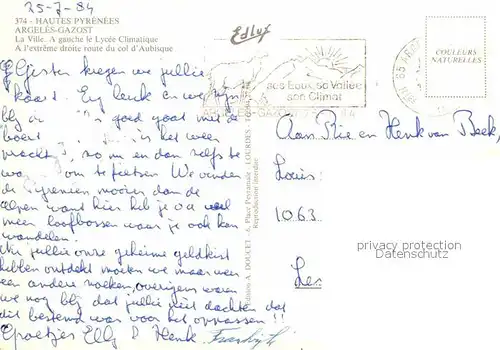 25-7-84
374 - HAUTES PYRÉNÉES
ARGELÈS-GAZOST
La Ville. A gauche le Lycée Climatique
A l'extrême droite route du col d'Aubisque
Edlux
ses Eaux sa Vallée
son Climat
COULEURS
NATURELLES
Gisteren kregen we jullie
kaart. Erg leuk en we zijn
blij goed gaat met de
is het weer
prachtig, so nu en dan zelfs te
om te fietsen. We vinden
de Pyreniën mooier dan de
alpen want hier heb je veel
meer loofbossen waar je ook kan
wandelen.
Nu jullie onze geheime geldkist
hebben ontdekt moeten we maar weer
een andere zoeken, overigens waren
we nog blij dat jullie niet dachten dat
dit bestemd was voor het oppassen !!
Groetjes Elly & Henk
Aan Rie en Henk van Beek,
Louis
1063
Les
Edition A. DOUCET - 6, Place Peyramale - LOURDES
Reproduction interdite
privacy protection
AK Ansichtskarten